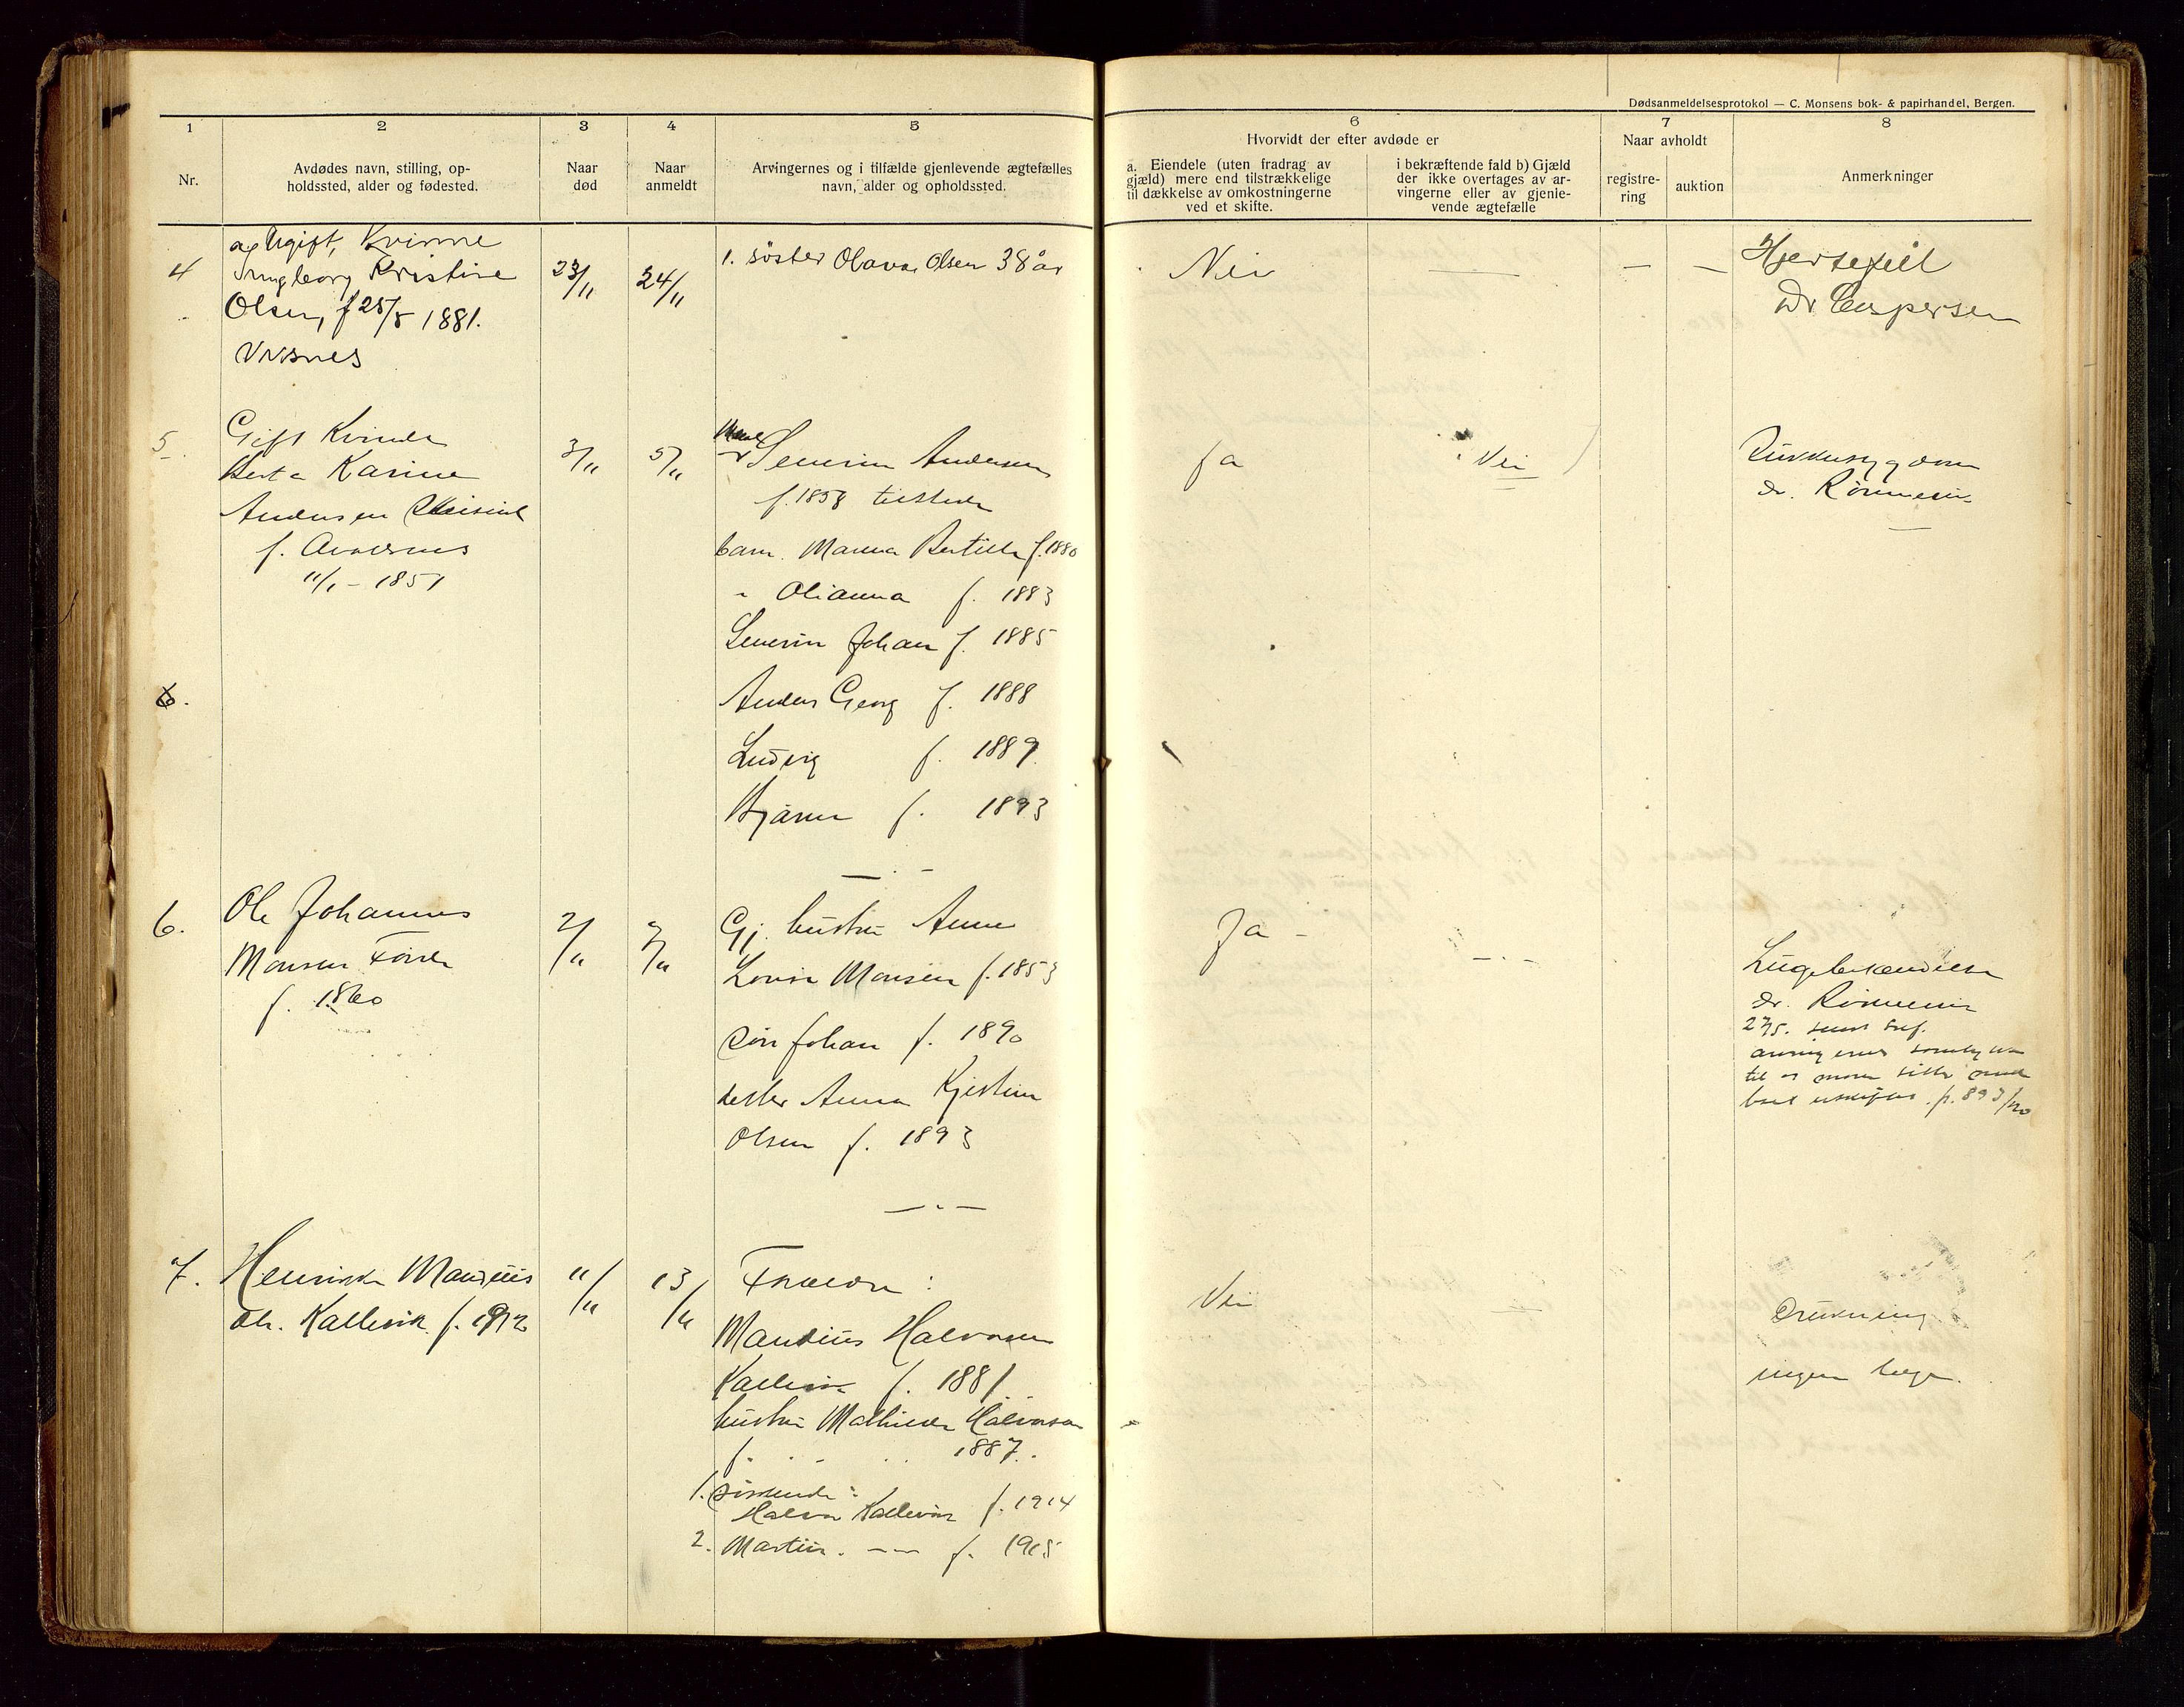 Dødsanmeldelsesprotokol — C. Monsens bok- & papirhandel, Bergen.
1
Nr.
2
Avdødes navn, stilling, op-
holdssted, alder og fødested.
3
Naar
død
4
Naar
anmeldt
5
Arvingernes og i tilfælde gjenlevende ægtefælles
navn, alder og opholdssted.
6
Hvorvidt der efter avdøde er
a. Eiendele (uten fradrag av
gjæld) mere end tilstrækkelige
til dækkelse av omkostningerne
ved et skifte.
i bekræftende fald b) Gjæld
der ikke overtages av ar-
vingerne eller av gjenle-
vende ægtefælle
7
Naar avholdt
registre-
ring
auktion
8
Anmerkninger
4
Ugift, Kvinne
Ingeborg Kristine
Olsen, f 25/5 1881.
Visnes
23/11
24/11
1. søster Olava Olsen 38 år
Nei
—
—
—
Hjertefeil
Dr Caspersen
5
Gift Kvinde
Berta Karine
Andersen
f.
11/1 - 1851
3/11
5/11
Severin Andersen
f. 1858 tilstede
barn. Bertille f. 1880
" Olianna f. 1883
Severin Johan f. 1885
Anders Georg f. 1888
Ludvig f. 1889
Bjarne f. 1893
Ja
Nei
dr.
6.
6.
Ole Johannes
Monsen
f. 1860
2/11
7/11
Gj. hustru Anne
Lovise Monsen f. 1853
søn Johan f. 1890
datter Anna Kjistine
Olsen f. 1893
Ja -
- . -
Lungebetændelse
dr.
7.
Henrik Mandius
Kallevik f. 1912
11/11
13/11
Forældre :
Mandius Halvorsen
Kallevik f. 1881
hustru Mathilde Halvorsen
f. 1887.
1. søskende :
Halvor Kallevik f. 1914
2. Martin. —"— f. 1915
Nei
—
Drukning
ingen læge.